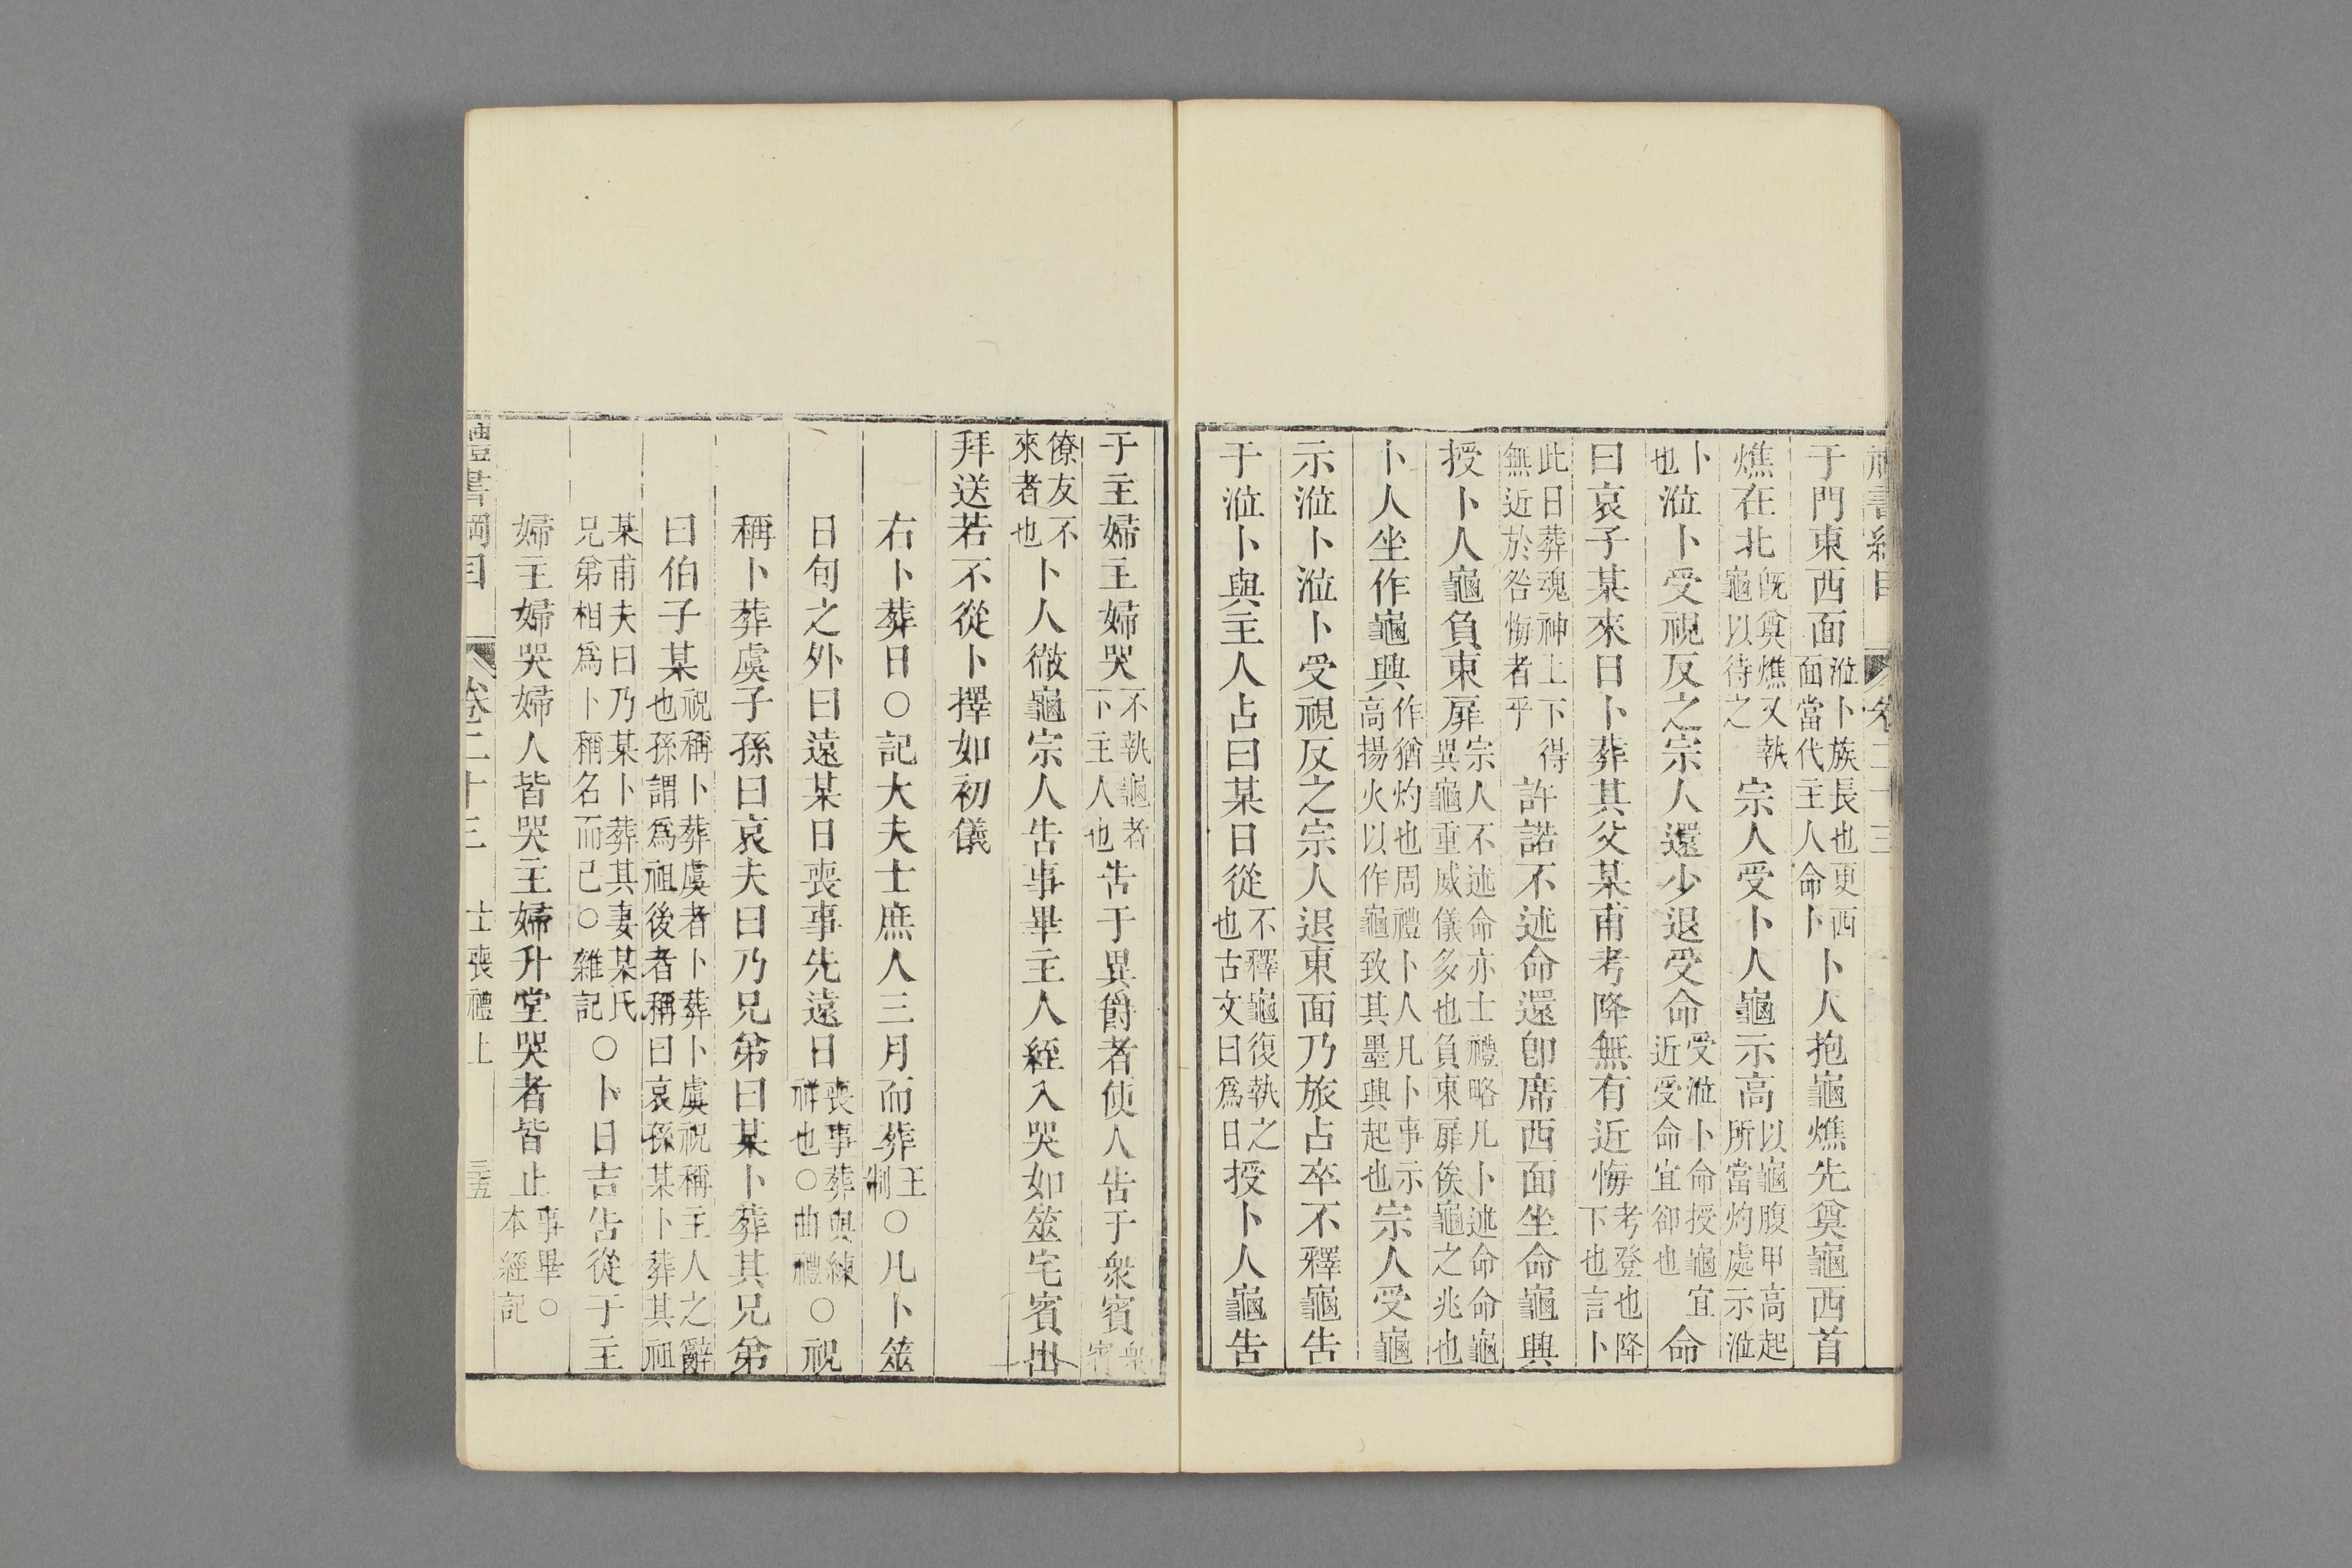 禮書綱目　卷二十三
于門東西面涖卜族長也更西面當代主人命卜卜人抱龜燋先奠龜西首
燋在北旣奠燋又執龜以待之宗人受卜人龜示高以龜腹甲高起所當灼處示涖
卜也涖卜受視反之宗人還少退受命受涖卜命授龜宜近受命宜卻也命
曰哀子某來日卜葬其父某甫考降無有近悔考登也降下也言卜
此日葬魂神上下得無近於咎悔者乎許諾不述命還卽席西面坐命龜興
授卜人龜負東扉宗人不述命亦士禮略凡卜述命命龜異龜重威儀多也負東扉俟龜之兆也
卜人坐作龜興作猶灼也周禮卜人凡卜事示高揚火以作龜致其墨興起也宗人受龜
示涖卜涖卜受視反之宗人退東面乃旅占卒不釋龜告
于涖卜與主人占曰某日從不釋龜復執之也古文曰爲日授卜人龜告
于主婦主婦哭不執龜者下主人也告于異爵者使人告于衆賓衆賓
僚友不來者也卜人徹龜宗人告事畢主人絰入哭如筮宅賓出
拜送若不從卜擇如初儀
右卜葬日○記大夫士庶人三月而葬王制○凡卜筮
日旬之外曰遠某日喪事先遠日喪事葬與練祥也○曲禮○祝
稱卜葬虞子孫曰哀夫曰乃兄弟曰某卜葬其兄弟
曰伯子某祝稱卜葬虞者卜葬卜虞祝稱主人之辭也孫謂爲祖後者稱曰哀孫某卜葬其祖
某甫夫曰乃某卜葬其妻某氏兄弟相爲卜稱名而已○雜記○卜日吉告從于主
婦主婦哭婦人皆哭主婦升堂哭者皆止事畢○本經記
禮書綱目　卷二十三　士喪禮上　三五